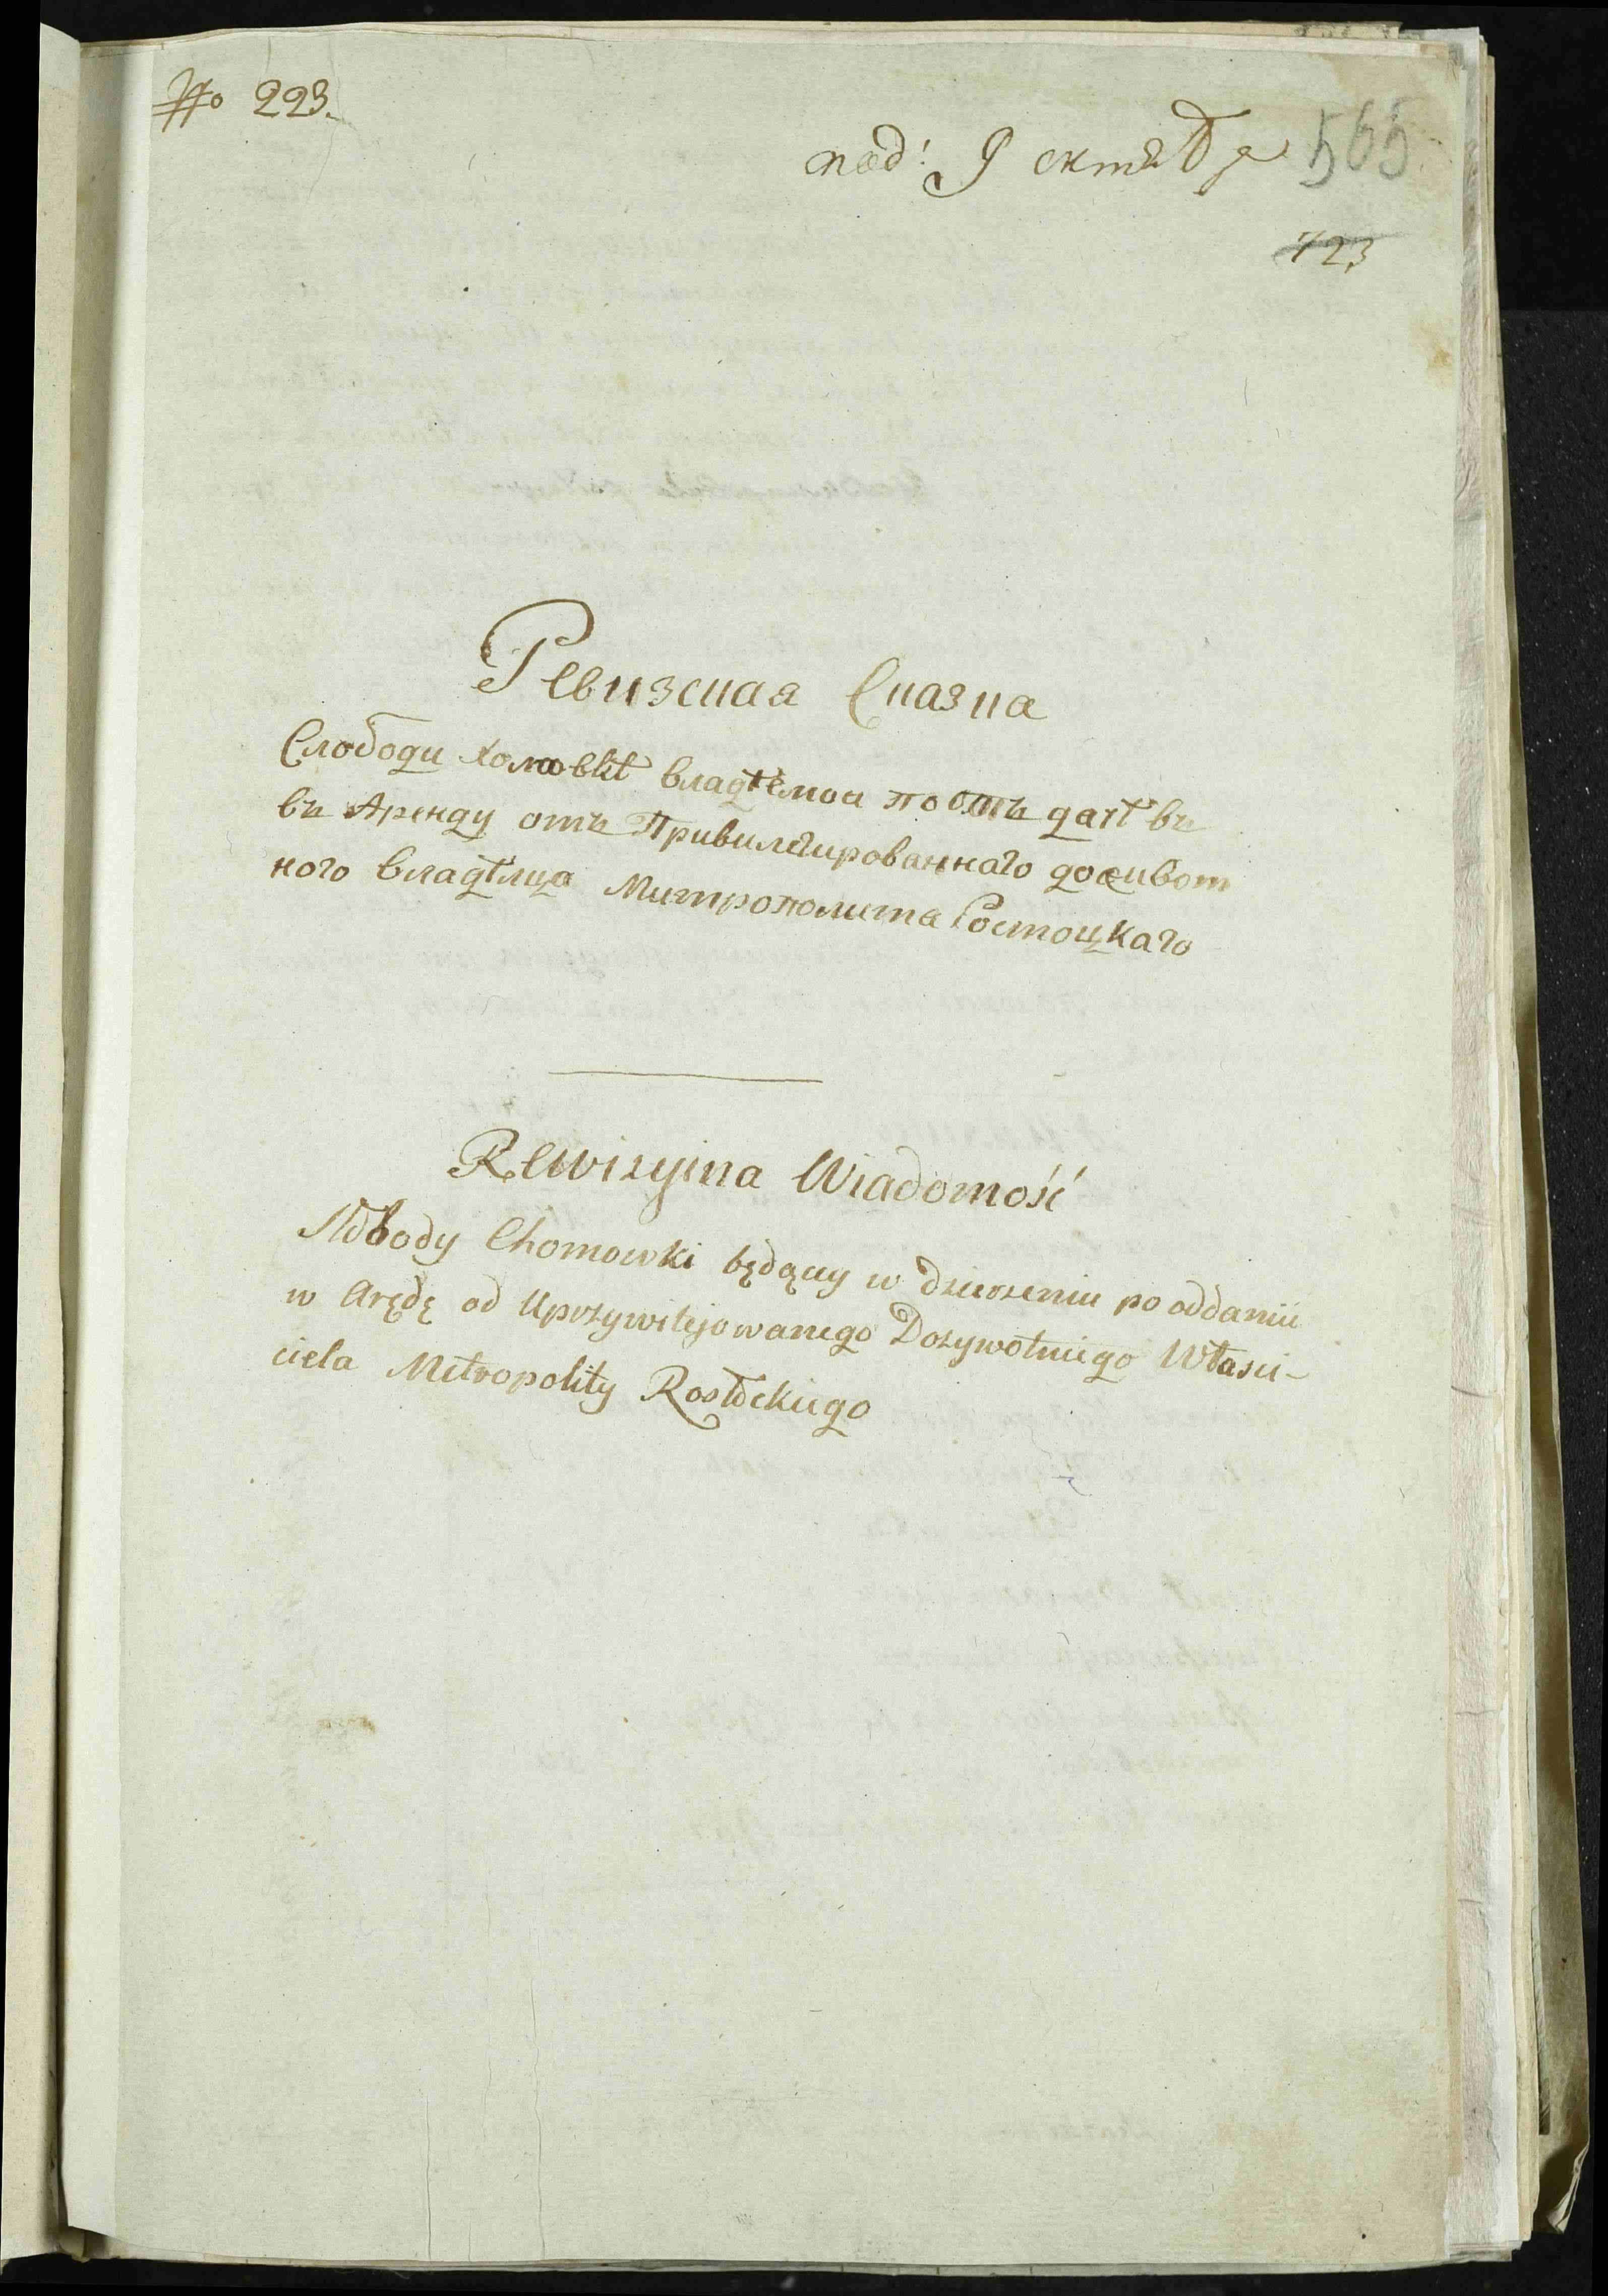 № 223.
под: 9 октября 565
723
Ревизская Сказка
Слободи Хомовки владѣемой по отъ дачѣ въ
въ Аренду отъ Привилегированнаго доживот
ного владѣлца Митрополита Ростоцкаго
Rewizyina Wiadomość
Słobody Chomowki będący w dzierzeniu po oddaniu
w Arędę od Uprzywilejowanego Dozywotniego Własci-
ciela Metropolity Rostockiego